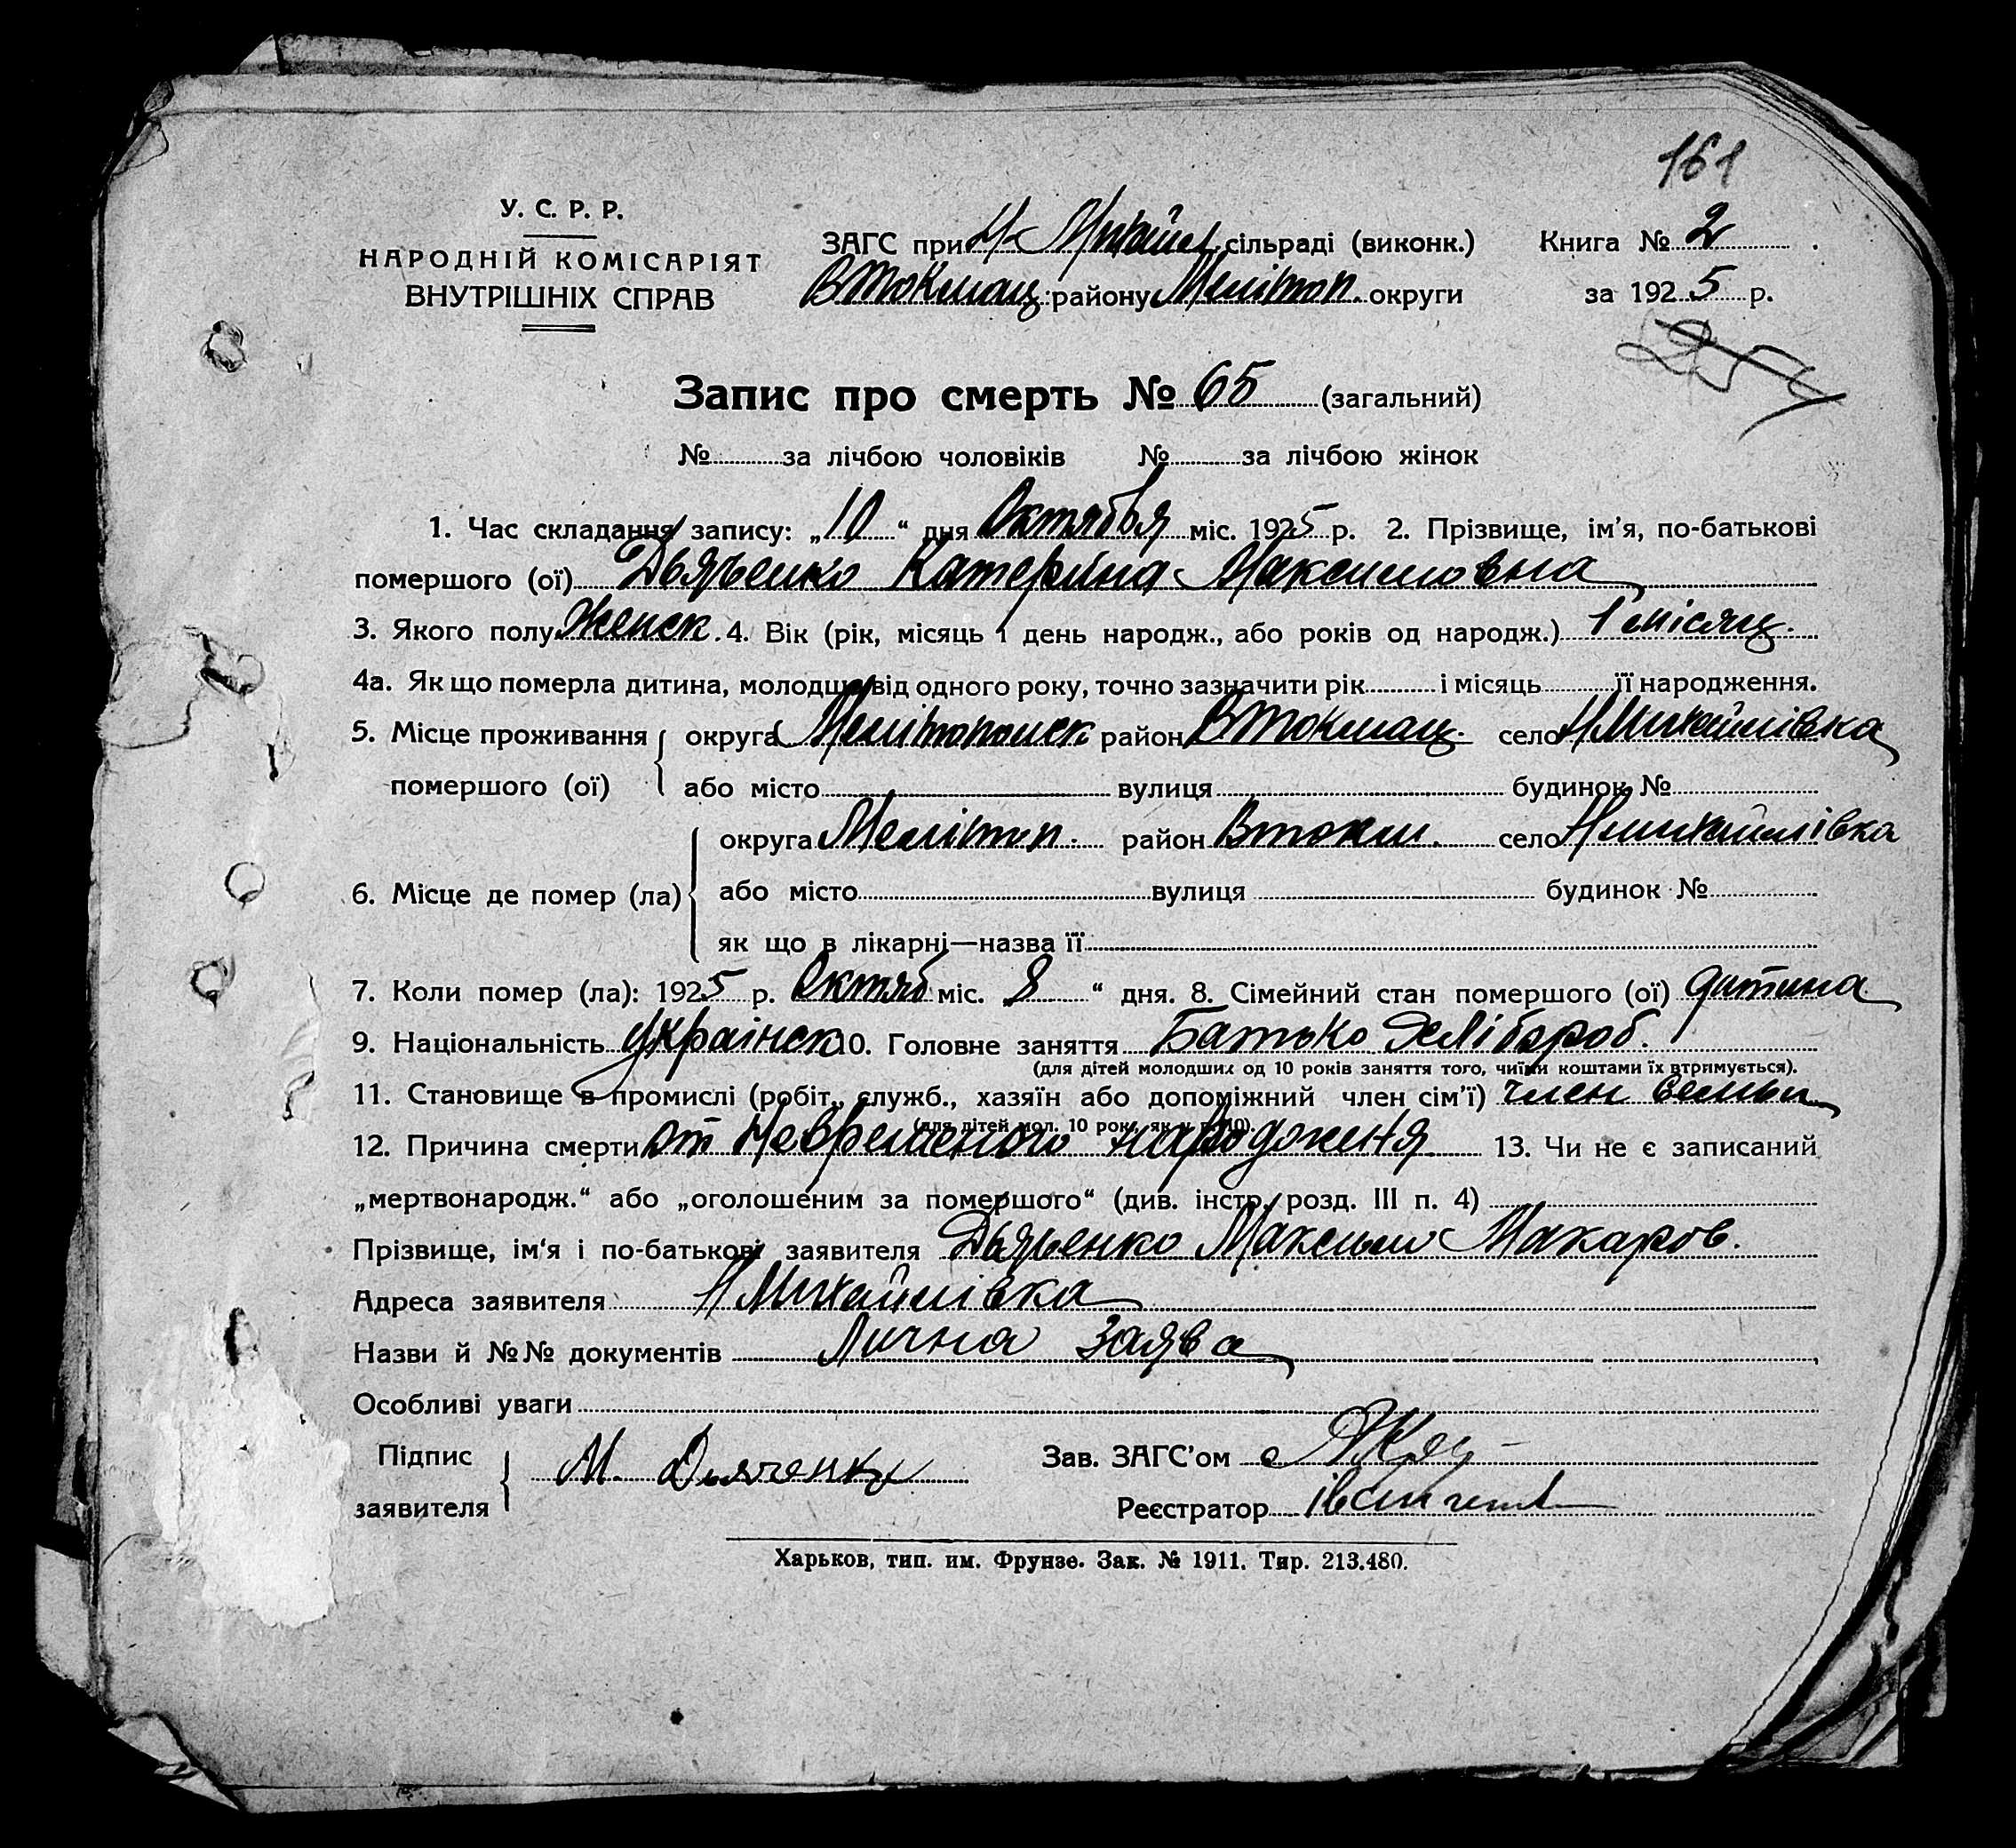 161
У. С. Р. Р.
НАРОДНІЙ КОМІСАРІЯТ
ВНУТРІШНІХ СПРАВ
ЗАГС при Н-Михайл. сільраді (виконк.) Книга № 2
ВТокмац. району Мелітоп. округи за 1925 р.
254
Запис про смерть № 65 (загальний)
№ за лічбою чоловіків № за лічбою жінок
1. Час складання запису: „10“ дня Октября міс. 1925 р. 2. Прізвище, ім’я, по-батькові
помершого (ої) Дьяченко Катерина Максимовна
3. Якого полу Женск. 4. Вік (рік, місяць і день народж., або років од народж.) 1 місяц.
4а. Як що померла дитина, молодша від одного року, точно зазначити рік і місяць її народження.
5. Місце проживання округа Мелітопольск район ВТокмац. село НМихайлівка
помершого (ої) або місто вулиця будинок №
округа Мелітоп. район Втокм. село Нмихайлівка
6. Місце де помер (ла) або місто вулиця будинок №
як що в лікарні—назва її
7. Коли помер (ла): 1925 р. Октяб міс. 8 “ дня. 8. Сімейний стан помершого (ої) дитина
9. Національність Українск 10. Головне заняття Батько Хлібороб.
(для дітей молодших од 10 років заняття того, чиїми коштами їх втримується).
11. Становище в промислі (робіт., служб., хазяїн або допоміжний член сім’ї) член семьи
(для дітей мол. 10 рок., як у п. 10).
12. Причина смерти от Невременого народженя 13. Чи не є записаний
„мертвонародж.“ або „оголошеним за помершого“ (див. інстр. розд. III п. 4)
Прізвище, ім‘я і по-батькові заявителя Дьяченко Максым Макаров.
Адреса заявителя НМихайлівка
Назви й №№ документів Лична заява
Особливі уваги
Підпис М. Дьяченко Зав. ЗАГС’ом
заявителя Реєстратор
Харьков, тип. им. Фрунзе. Зак. № 1911. Тир. 213.480.